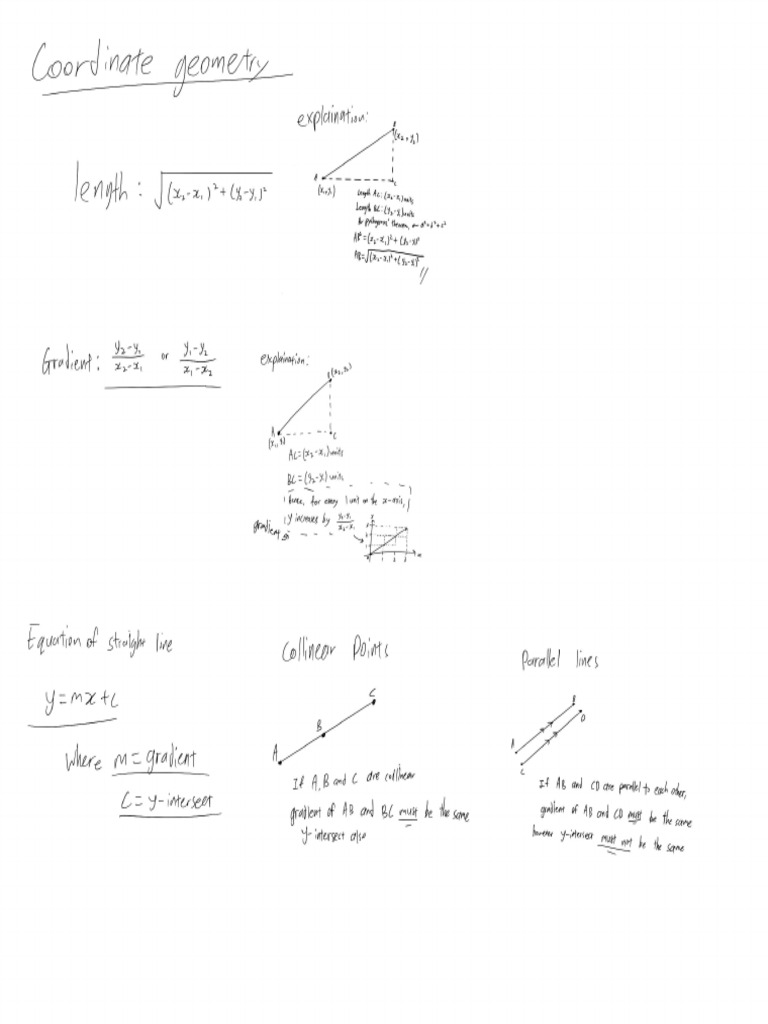 Coordinate geometry
length: √(x₂-x₁)²+(y₂-y₁)²
explaination:
B
(x₂, y₂)
A
(x₁,y₁)
C
Length AC: (x₂-x₁) units
Length BC: (y₂-y₁) units
By pythagoras' theorem, a²+b²=c²
AB²=(x₂-x₁)²+(y₂-y₁)²
AB=√(x₂-x₁)²+(y₂-y₁)²
Gradient: y₂-y₁/x₂-x₁ or y₁-y₂/x₁-x₂
explaination:
B(x₂, y₂)
A
(x₁, y₁)
C
AC=(x₂-x₁) units
BC=(y₂-y₁) units
hence, for every 1 unit on the x-axis,
y increases by y₂-y₁/x₂-x₁
gradient
1 2 3
Equation of straight line
y=mx+c
Where m=gradient
c=y-intersect
Collinear Points
A
B
C
If A, B and C are collinear
gradient of AB and BC must be the same
y-intersect also
Parallel lines
A
B
C
D
If AB and CD are parallel to each other,
gradient of AB and CD must be the same
however y-intersect must not be the same